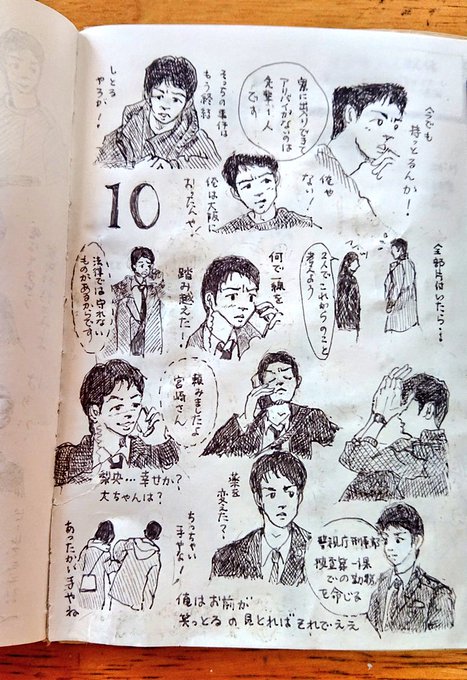 今でも
持っとるんか!
寮に出入りできて
アリバイがないのは
先輩1人
です
俺や
ない!
俺は大阪
おったんや!
そっちの事件は
もう終結
しとる
やろが!!
10
全部片付いたら…
2人でこれからのこと
考えよう
何で一線を
踏み越えた!
法律では守れない
ものがあるからです
頼みましたよ
宮崎さん
梨央…幸せか?
大ちゃんは?
薬を
変えた??
ちっちゃい
手やな!
あったかい手やね
警視庁刑事部
捜査第一課
での勤務
を命じる
俺はお前が
笑っとるの見とればそれでええ